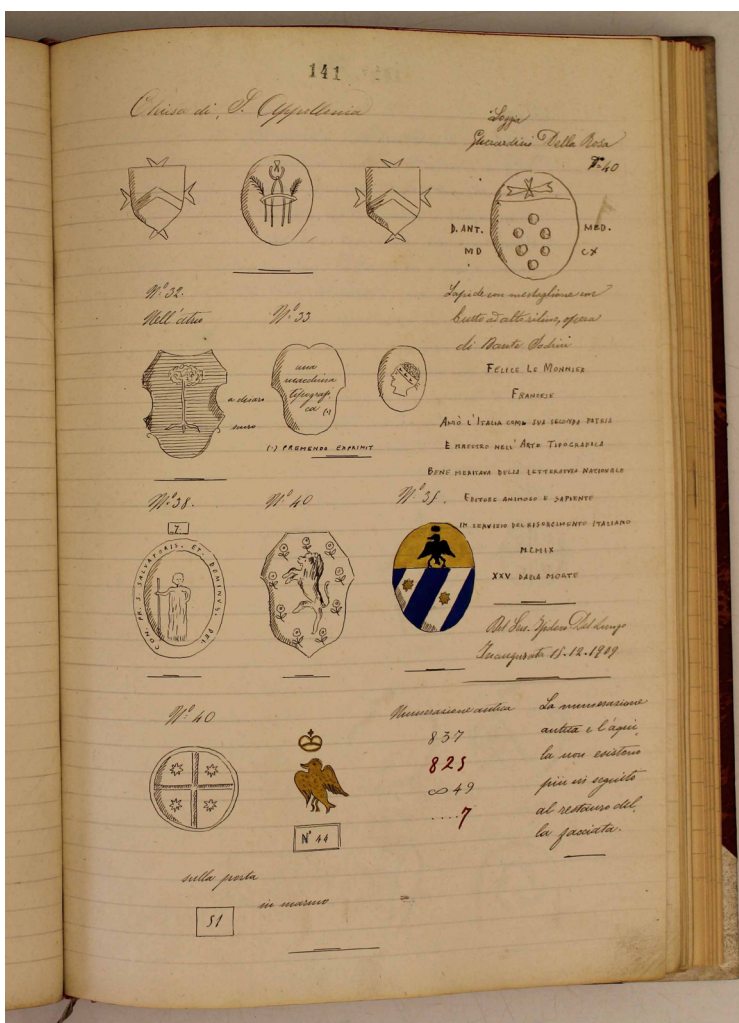 141
Chiesa di S. Appollonia
Loggia
Gherardini Della Rosa
N° 40
D. ANT. MED.
MD CX
N.º 32.
Nell'atrio
N.º 33
a chiaro
scuro
una
macchina
tipografi
ca (1)
(1) PREMENDO EXPRIMIT
Lapide con medaglione con
busto ad alto rilievo, opera
di Dante Sodini
FELICE LE MONNIER
FRANCESE
AMÒ L'ITALIA COME SUA SECONDA PATRIA
E MAESTRO NELL'ARTE TIPOGRAFICA
BENE MERITAVA DELLA LETTERATURA NATIONALE
EDITORE ANIMOSO E SAPIENTE
IN SERVIZIO DEL RISORGIMENTO ITALIANO
MCMIX
XXV DALLA MORTE
Del Sen. Isidoro Del Lungo
Inaugurata 15.12.1909
N.º 38.
7.
CON. PR. S. SALVATORIS. ET. DOMINVS. DEL
N.º 40
N.º 35.
N.º 40
Nº 44
Numerazione antica
837
825
∞49
....7
La numerazione
antica e l'aqui,
la non esistono
più in seguito
al restauro del,
la facciata.
sulla porta
in marmo
51